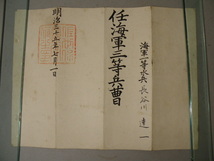 海軍一等水兵 長谷川達一
任海軍三等兵曹
明治三十五年七月一日